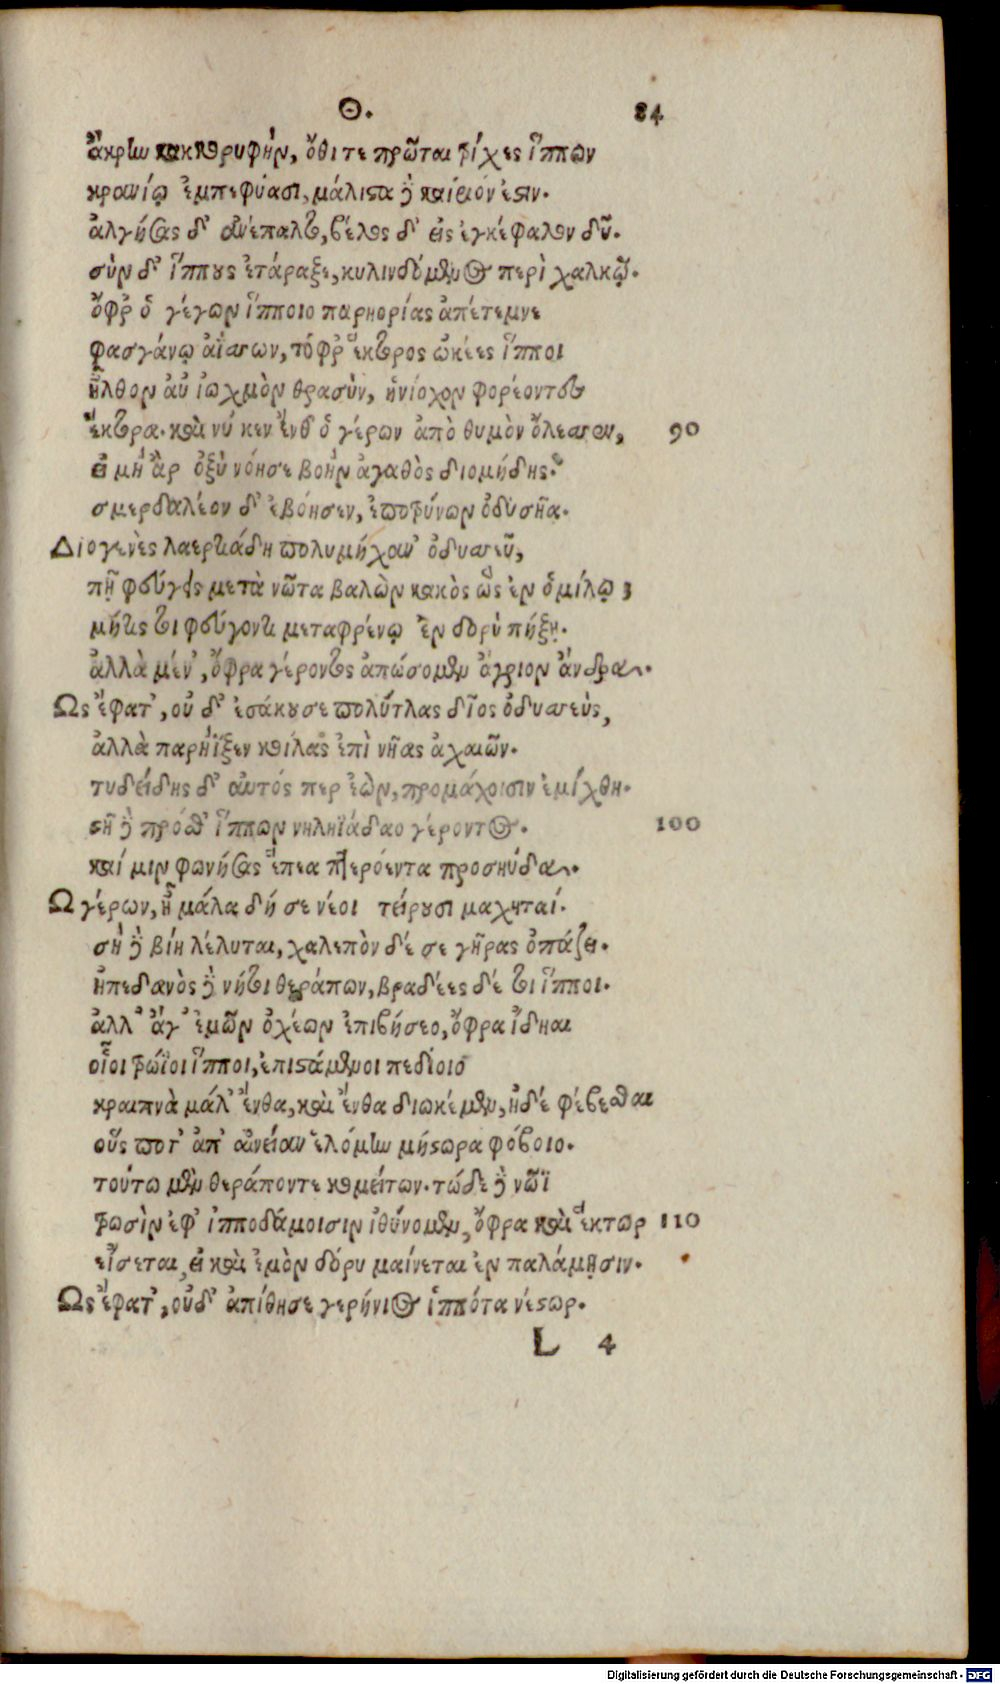 Θ. 84
ἄκρην κακκορυφὴν, ὅθι τε πρῶται τρίχες ἵππων
κρανίῳ ἐμπεφύασι, μάλιστα δὲ καίριόν ἐστιν.
ἀλγήσας δ' ἀνέπαλτο, βέλος δ' εἰς ἐγκέφαλον δῦ.
σὺν δ' ἵππους ἐτάραξε, κυλινδόμενος περὶ χαλκῷ.
ὄφρ' ὁ γέρων ἵπποιο παρηορίας ἀπέτεμνε
φασγάνῳ ἀΐσσων, τόφρ' ἕκτορος ὠκέες ἵπποι
ἦλθον ἀν' ἰωχμὸν θρασὺν, ἡνίοχον φορέοντες
ἕκτορα. καὶ νύ κεν ἔνθ' ὁ γέρων ἀπὸ θυμὸν ὄλεσσεν, 90
εἰ μὴ ἂρ ὀξὺ νόησε βοὴν ἀγαθὸς διομήδης.
σμερδαλέον δ' ἐβόησεν, ἐποτρύνων ὀδυσῆα.
Διογενὲς λαερτιάδη πολυμήχαν' ὀδυσσεῦ,
πῆ φεύγεις μετὰ νῶτα βαλὼν κακὸς ὣς ἐν ὁμίλῳ;
μήτις τοι φεύγοντι μεταφρένῳ ἐν δορὺ πήξῃ.
ἀλλὰ μέν', ὄφρα γέροντος ἀπώσομεν ἄγριον ἄνδρα.
Ως ἔφατ', οὐ δ' ἐσάκουσε πολύτλας δῖος ὀδυσσεὺς,
ἀλλὰ παρήϊξεν κοίλας ἐπὶ νῆας ἀχαιῶν.
τυδείδης δ' αὐτός περ ἐὼν, προμάχοισιν ἐμίχθη.
στῆ δὲ πρόσθ' ἵππων νηληϊάδαο γέροντος. 100
καί μιν φωνήσας ἔπεα πτερόεντα προσηύδα.
Ω γέρων, ἦ μάλα δή σε νέοι τείρουσι μαχηταί.
σὴ δὲ βίη λέλυται, χαλεπὸν δέ σε γῆρας ὀπάζει.
ἠπεδανὸς δὲ νήτοι θεράπων, βραδέες δέ τοι ἵπποι.
ἀλλ' ἄγ' ἐμῶν ὀχέων ἐπιβήσεο, ὄφρα ἴδηαι
οἷοι τρώϊοι ἵπποι, ἐπιστάμενοι πεδίοιο
κραιπνὰ μάλ' ἔνθα, καὶ ἔνθα διωκέμεν, ἠδέ φέβεσθαι
οὕς ποτ' ἀπ' αἰνείαν ἑλόμην μήστωρα φόβοιο.
τούτω μὲν θεράποντε κομείτων. τώδε δὲ νῶϊ
τρωσὶν ἐφ' ἱπποδάμοισιν ἰθύνομεν, ὄφρα καὶ ἕκτωρ 110
εἴσεται, εἰ καὶ ἐμὸν δόρυ μαίνεται ἐν παλάμῃσιν.
Ως ἔφατ', οὐδ' ἀπίθησε γερήνιος ἱππότα νέστωρ.
L 4
Digitalisierung gefördert durch die Deutsche Forschungsgemeinschaft - DFG